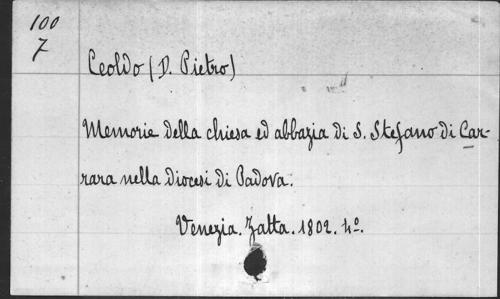 100
7
Ceoldo (D. Pietro)
Memorie della chiesa ed abbazia di S. Stefano di Car-
rara nella diocesi di Padova.
Venezia. Zatta. 1802. 4º.